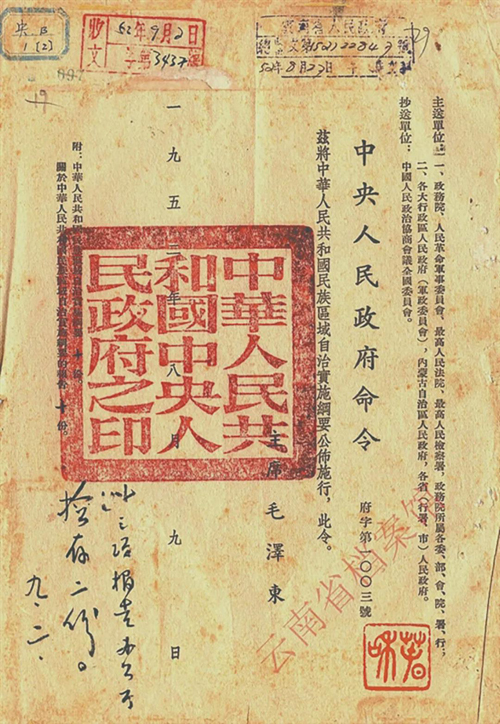 主送單位：一、政務院、人民革命軍事委員會、最高人民法院、最高人民檢察署，政務院所屬各委、部、會、院、署、行；
二、各大行政區人民政府（軍政委員會），內蒙古自治區人民政府，各省（行署、市）人民政府。
抄送單位：中國人民政治協商會議全國委員會。
中央人民政府命令
府字第一〇〇三號
茲將中華人民共和國民族區域自治實施綱要公佈施行，此令。
主席 毛澤東
一九五二年八月九日
附：中華人民共和國
關於中華人民共和
十份。
中華人民共
和國中央人
民政府之印
收文
52年9月2日
字第3437號
央
1（2）
19
檢存二份。
九.二.
云南省档案馆